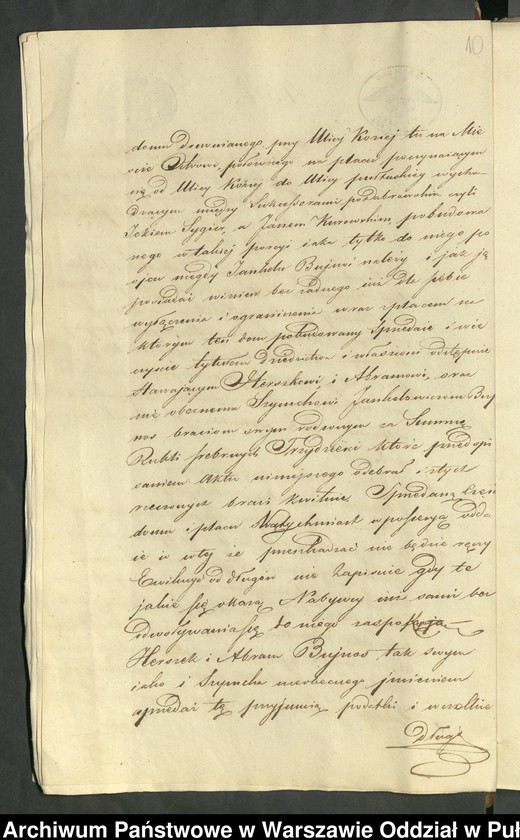 10
domu drewnianego, przy Ulicy Koziej tu na Mie
ście położonego na placu poczynającym
się od Ulicy Koziej do Ulicy pułtuskiej wycho
dzącym między Sukcessorami
Ickiem Sygier, a Janem Kurowskim, pobudowa
nego w takiej porcyi iaka tylko do niego po
ojcu między Jankielu Bujnos należy i jaź ją
posiadać winien bez żadnego już dla siebie
wyłączenia i ograniczenia wraz z placem na
którym ten dom pobudowany Sprzedaie i wie
czyście tytułem dziedzictwa i własności odstępuie
Stawającym Herszkowi i Abramowi, oraz
nie obecnemu Szymchowi Jankielowiczom Buj
nos braciom swym rodzonym za Summę
Rubli srebrnych Trzydzieści które przed opi
saniem Aktu niniejszego odebrał i z tych
rzeczonych braci kwituie. Sprzedaną część
domu i placu Natychmiast w possessyą odda
ie i w tej że przeszkadzać nie będzie ręczy
Ewikcyi od długów nie Zapisuie gdy te
jakie się okażą Nabywcy już sami bez
odwoływania się do niego zaspokoją
Herszek i Abram Bujnos, tak swym
iako i Szymcha nieobecnego imieniem
sprzedaż tę przyjmuią podatki i wszelkie
długi
Archiwum Państwowe w Warszawie Oddział w Puł